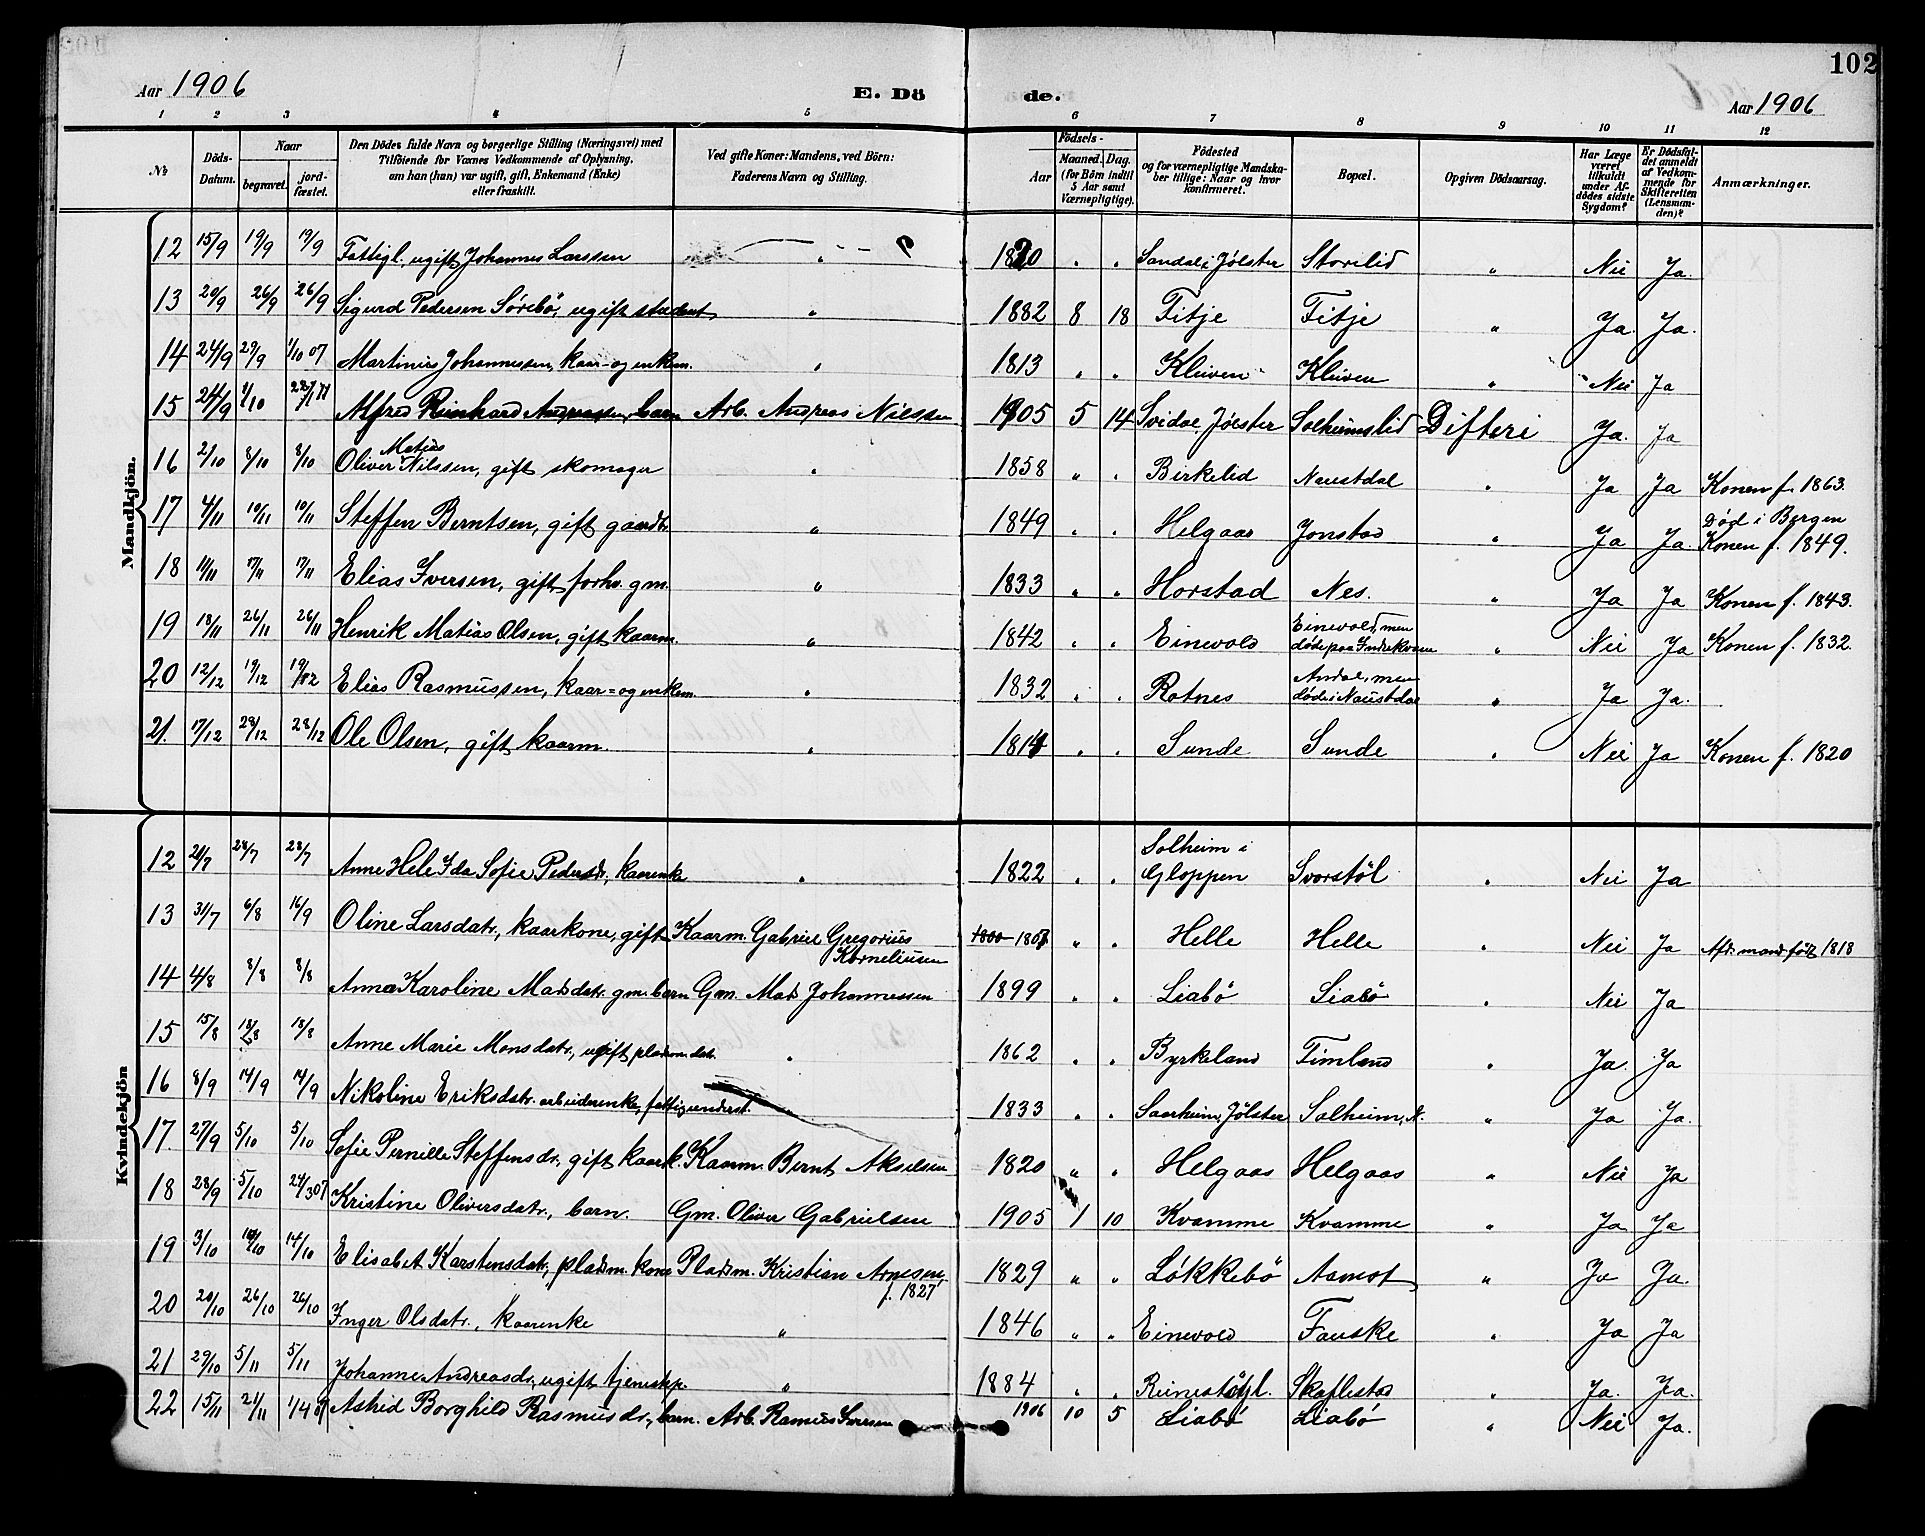 102
Aar 1906 E. Dö de. Aar 1906
1 2 3 4 5 6 7 8 9 10 11 12
No
Döds-Datum.
Naar
begravet.
jord-fæstet.
Den Dödes fulde Navn og borgerlige Stilling (Næringsvei) med
Tilföiende for Voxnes Vedkommende af Oplysning,
om han (hun) var ugift, gift, Enkemand (Enke)
eller fraskilt.
Ved gifte Koner: Mandens, ved Börn:
Faderens Navn og Stilling.
Födsels-
Aar
Maaned. Dag.
(for Börn indtil
5 Aar samt
Værnepligtige).
Födested
og for værnepligtige Mandska-
ber tillige: Naar og hvor
konfirmeret.
Bopæl.
Opgiven Dödsaarsag.
Har Læge
været
tilkaldt
under Af-
dödes sidste
Sygdom?
Er Dödsfal-
det anmeldt
af Vedkom-
mende for
Skifteretten
(Lensman-
den)?
Anmærkninger.
Mandkjön.
12 15/9 19/9 19/9 Fattigl., ugift Johannes Larssen " 1820 " " Sandal i Jølster Storelid " Nei Ja.
13 20/9 26/9 26/9 Sigurd Pedersen Sörebö, ugift student " 1882 8 18 Fitje Fitje " Ja. Ja.
14 24/9 29/9 1/10 07 Martinus Johannessen, kaar- og enkem. " 1813 " " Kleiven Kleiven " Nei Ja
15 24/9 1/10 Alfred Reinhard Andreassen, barn Arb. Andreas Nilssen 1905 5 14 Svidal, Jølster Solheimslid Difteri Ja. Ja
16 2/10 8/10 8/10 Oliver Matias Nilssen, gift skomager " 1858 " " Birkelid Naustdal " Ja Ja Konen f. 1863.
17 4/11 10/11 10/11 Steffen Berntsen, gift gaardbr. " 1849 " " Helgaas Jonstad " Ja Ja. Død i Bergen
Konen f. 1849.
18 11/11 17/11 17/11 Elias Iversen, gift forhv. gm. " 1833 " " Horstad Nes. " Ja Ja Konen f. 1843.
19 18/11 26/11 26/11 Henrik Matias Olsen, gift kaarm. " 1842 " " Einevold Einevold, men
døde paa Indrekvam " Nei Ja Konen f. 1832.
20 12/12 19/12 19/12 Elias Rasmussen, kaar= og enkem. " 1832 " " Rotnes Andal, men
døde i Naustdal " Ja Ja.
21. 17/12 28/12 28/12 Ole Olsen, gift kaarm. " 1814 " " Sunde Sunde " Nei Ja Konen f. 1820
Kvindekjön
12 21/7 28/7 28/7 Anne Hele Ida Sofie Pedersdr., kaarenke " 1822 " " Solheim i
Gloppen Svorstöl " Nei Ja
13 31/7 6/8 16/9 Oline Larsdatr., kaarkone, gift Kaarm. Gabriel Gregorius
Korneliussen 1800 1807 " " Helle Helle " Nei Ja Afd. mand født 1818
14 4/8 8/8 8/8 Anna Karoline Madsdatr. gm. barn Gm. Mads Johannessen 1899 " " Liabö Liabö " Nei Ja
15 15/8 18/8 18/8 Anne Marie Monsdatr., ugift pladsm. datr. " 1862 " " Byrkeland Timland " Ja. Ja
16 8/9 14/9 14/9 Nikoline Eriksdatr. arbeiderenke, fattigunderst. 1833 " " Saarheim, Jölster Solheim, N. " Ja Ja.
17. 27/9 5/10 5/10 Sofie Pernille Steffensdr., gift kaark. Kaarm. Bernt Akselsen 1820 " " Helgaas Helgaas " Nei Ja
18 28/9 5/10 24/3 07 Kristine Oliversdatr., barn. Gm. Oliver Gabrielsen 1905 1 10 Kvamme Kvamme " Ja Ja
19 3/10 14/10 14/10 Elisabet Karstensdatr., pladsm. kone Pladsm. Kristian Arnesen,
f. 1827 1829 " " Løkkebö Aamot " Ja Ja.
20 20/10 26/10 26/10 Inger Olsdatr., kaarenke " 1846 " " Einevold Fauske " Ja Ja
21 29/10 5/11 5/11 Johanne Andreasdr., ugift tjenestp. " 1884 " " Skaflestad " Ja. Ja.
22 15/11 21/11 Astrid Borghild Rasmusdr., barn. Arb. Rasmus Iversen 1906 10 5 Liabö Liabö " Nei Ja.